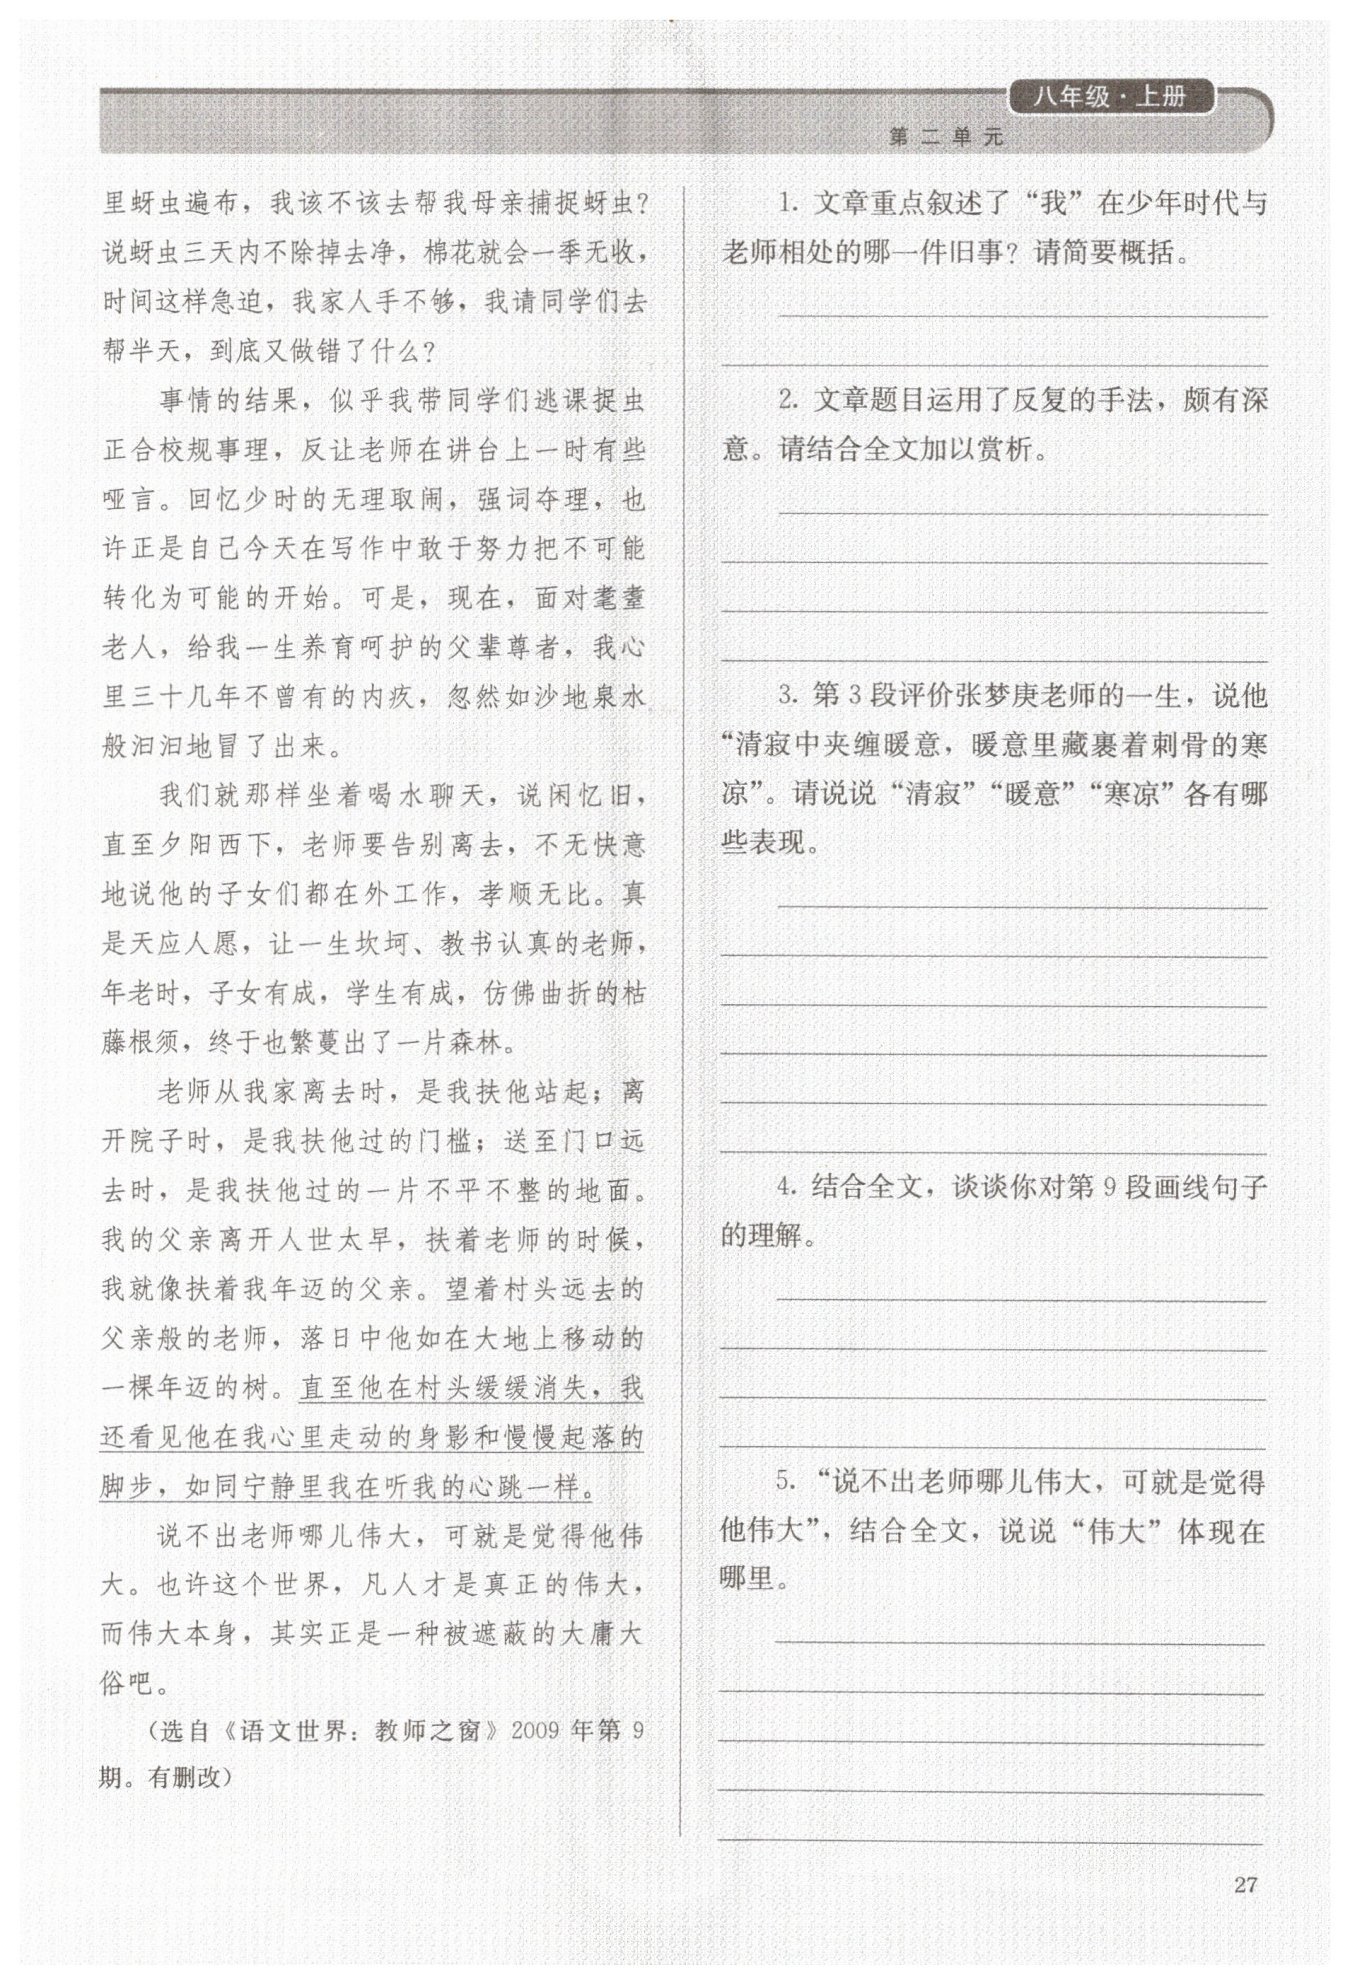 八年级·上册
第二单元
里蚜虫遍布，我该不该去帮我母亲捕捉蚜虫？
说蚜虫三天内不除掉去净，棉花就会一季无收，
时间这样急迫，我家人手不够，我请同学们去
帮半天，到底又做错了什么？
事情的结果，似乎我带同学们逃课捉虫
正合校规事理，反让老师在讲台上一时有些
哑言。回忆少时的无理取闹，强词夺理，也
许正是自己今天在写作中敢于努力把不可能
转化为可能的开始。可是，现在，面对耄耋
老人，给我一生养育呵护的父辈尊者，我心
里三十几年不曾有的内疚，忽然如沙地泉水
般汩汩地冒了出来。
我们就那样坐着喝水聊天，说闲忆旧，
直至夕阳西下，老师要告别离去，不无快意
地说他的子女们都在外工作，孝顺无比。真
是天应人愿，让一生坎坷、教书认真的老师，
年老时，子女有成，学生有成，仿佛曲折的枯
藤根须，终于也繁蔓出了一片森林。
老师从我家离去时，是我扶他站起；离
开院子时，是我扶他过的门槛；送至门口远
去时，是我扶他过的一片不平不整的地面。
我的父亲离开人世太早，扶着老师的时候，
我就像扶着我年迈的父亲。望着村头远去的
父亲般的老师，落日中他如在大地上移动的
一棵年迈的树。直至他在村头缓缓消失，我
还看见他在我心里走动的身影和慢慢起落的
脚步，如同宁静里我在听我的心跳一样。
说不出老师哪儿伟大，可就是觉得他伟
大。也许这个世界，凡人才是真正的伟大，
而伟大本身，其实正是一种被遮蔽的大庸大
俗吧。
（选自《语文世界：教师之窗》2009年第9
期。有删改）
1. 文章重点叙述了“我”在少年时代与
老师相处的哪一件旧事？请简要概括。
2. 文章题目运用了反复的手法，颇有深
意。请结合全文加以赏析。
3. 第3段评价张梦庚老师的一生，说他
“清寂中夹缠暖意，暖意里藏裹着刺骨的寒
凉”。请说说“清寂”“暖意”“寒凉”各有哪
些表现。
4. 结合全文，谈谈你对第9段画线句子
的理解。
5. “说不出老师哪儿伟大，可就是觉得
他伟大”，结合全文，说说“伟大”体现在
哪里。
27